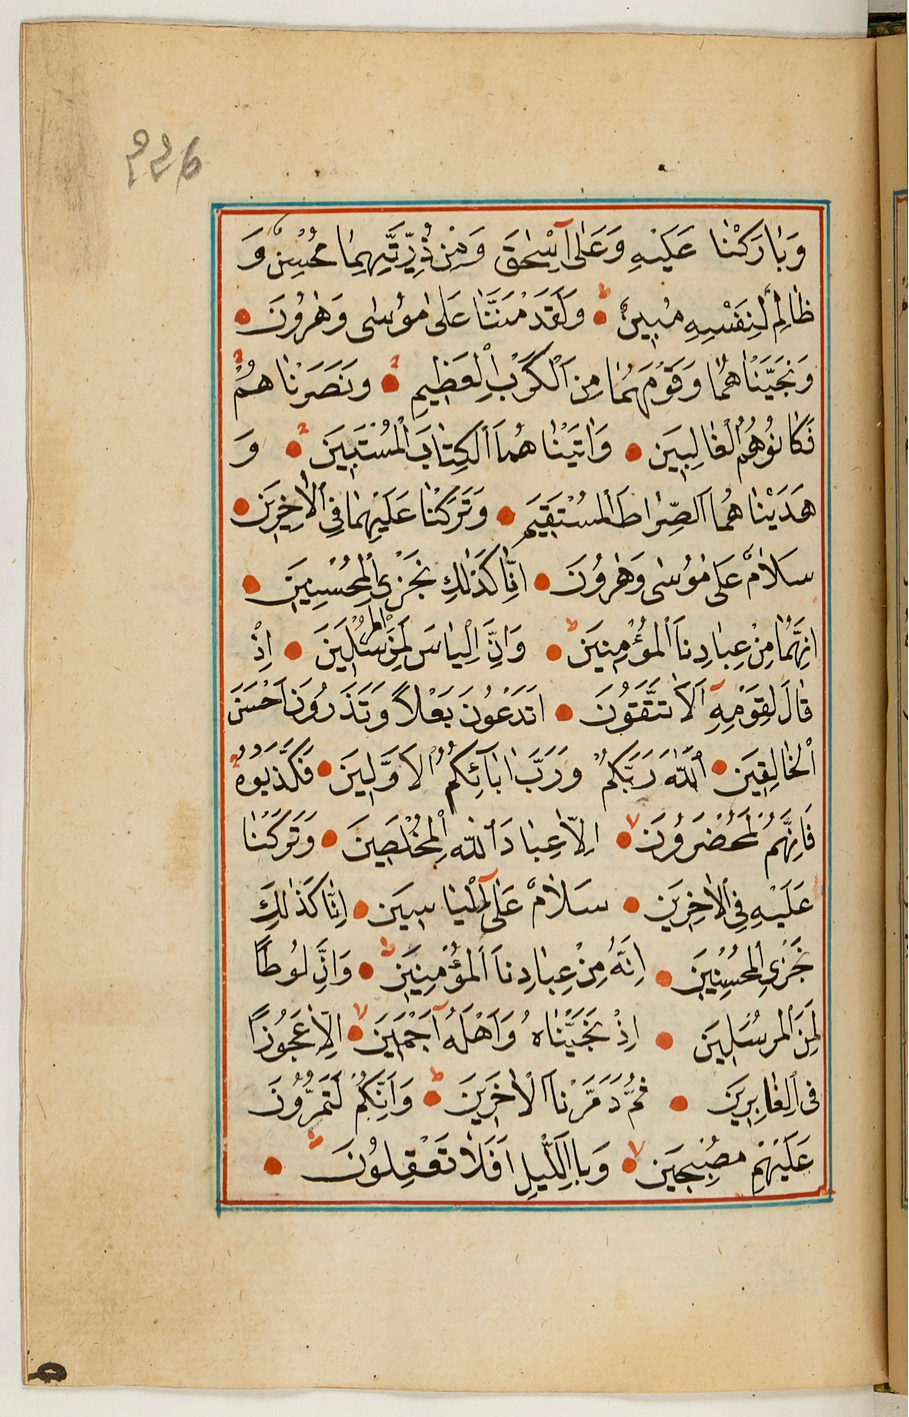 ٢٢٦
وَبَارَكْنَا عَلَيْهِ وَعَلٰٓى اِسْحٰقَ وَمِنْ ذُرِّيَّتِهِمَا مُحْسِنٌ وَ
ظَالِمٌ لِنَفْسِهِ مُبِينٌ ط ● وَلَقَدْ مَنَنَّا عَلٰى مُوسٰى وَهٰرُونَ ●
وَنَجَّيْنَاهُمَا وَقَوْمَهُمَا مِنَ الْكَرْبِ الْعَظِيمِ ● وَنَصَرْنَاهُمْ
فَكَانُوا هُمُ الْغَالِبِينَ ● وَاٰتَيْنَاهُمَا الْكِتَابَ الْمُسْتَبِينَ ● وَ
هَدَيْنَاهُمَا الصِّرَاطَ الْمُسْتَقِيمَ ● وَتَرَكْنَا عَلَيْهِمَا فِى الْاٰخِرِينَ ●
سَلَامٌ عَلٰى مُوسٰى وَهٰرُونَ ● اِنَّا كَذٰلِكَ نَجْزِى الْمُحْسِنِينَ ●
اِنَّهُمَا مِنْ عِبَادِنَا الْمُؤْمِنِينَ ط ● وَاِنَّ اِلْيَاسَ لَمِنَ الْمُرْسَلِينَ ● اِذْ
قَالَ لِقَوْمِهِٓ اَلَا تَتَّقُونَ ● اَتَدْعُونَ بَعْلًا وَتَذَرُونَ اَحْسَنَ
الْخَالِقِينَ ● اَللّٰهَ رَبَّكُمْ وَرَبَّ اٰبَائِكُمُ الْاَوَّلِينَ ● فَكَذَّبُوهُ
فَاِنَّهُمْ لَمُحْضَرُونَ ٧ ● اِلَّا عِبَادَ اللّٰهِ الْمُخْلَصِينَ ● وَتَرَكْنَا
عَلَيْهِ فِى الْاٰخِرِينَ ● سَلَامٌ عَلٰٓى اِلْيَاسِينَ ● اِنَّا كَذٰلِكَ
نَجْزِى الْمُحْسِنِينَ ● اِنَّهُ مِنْ عِبَادِنَا الْمُؤْمِنِينَ ط ● وَاِنَّ لُوطًا
لَمِنَ الْمُرْسَلِينَ ● اِذْ نَجَّيْنَاهُ وَاَهْلَهُٓ اَجْمَعِينَ ٧ ● اِلَّا عَجُوزًا
فِى الْغَابِرِينَ ● ثُمَّ دَمَّرْنَا الْاٰخَرِينَ ط ● وَاِنَّكُمْ لَتَمُرُّونَ
عَلَيْهِمْ مُصْبِحِينَ ٧ ● وَبِالَّيْلِ اَفَلَا تَعْقِلُونَ ط ●